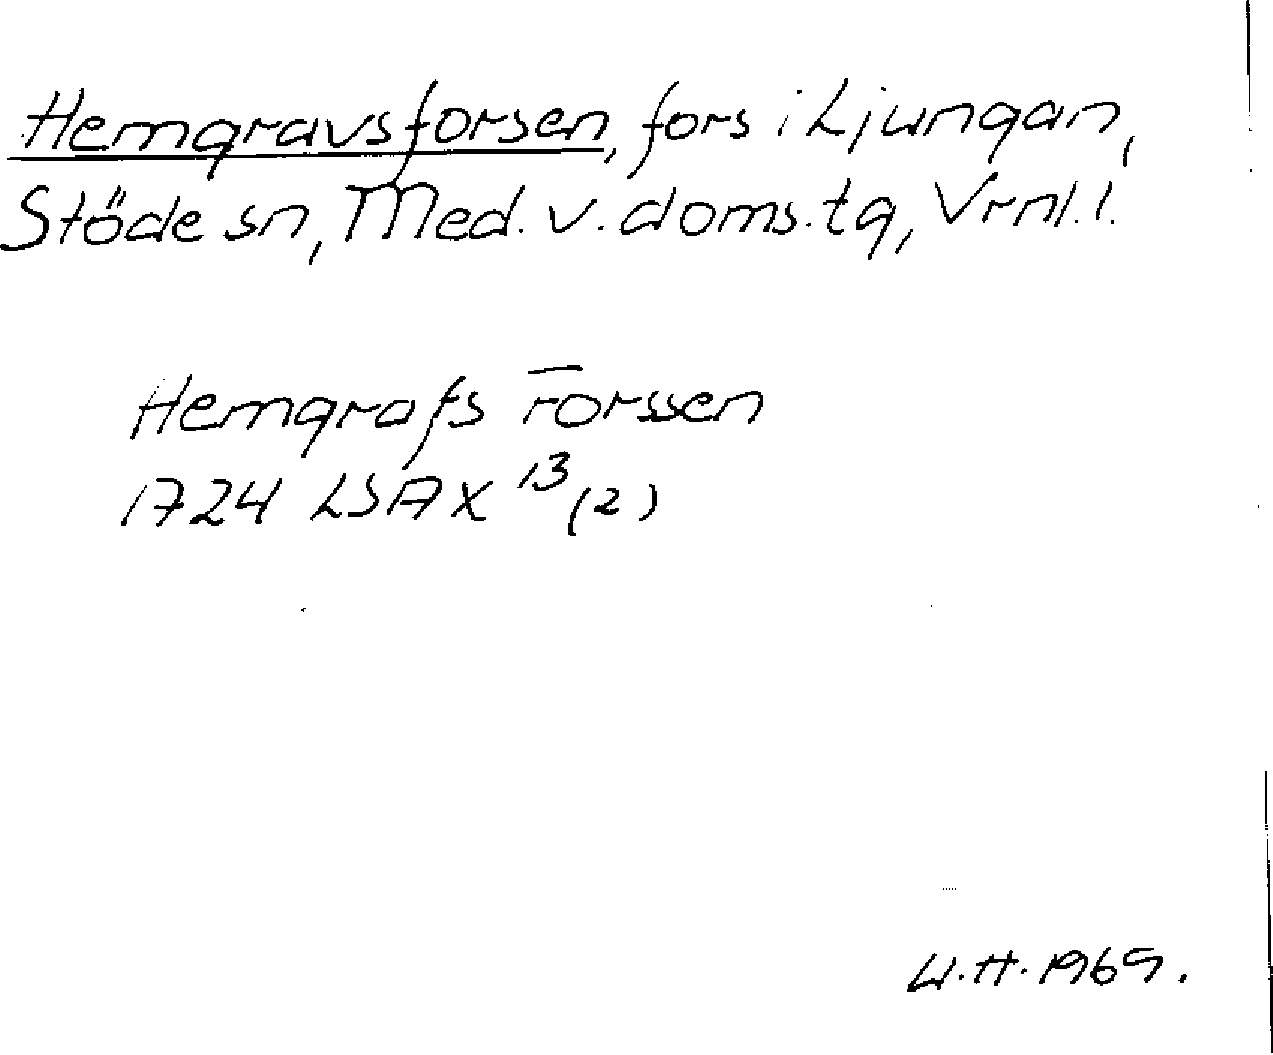 Hemgravsforsen, fors i Ljungan,
Stöde sn, Med. v. doms. tg, Vrnl. l.
Hemgrafs Forssen
1724 LSA X 13 (2)
W.H. 1965.